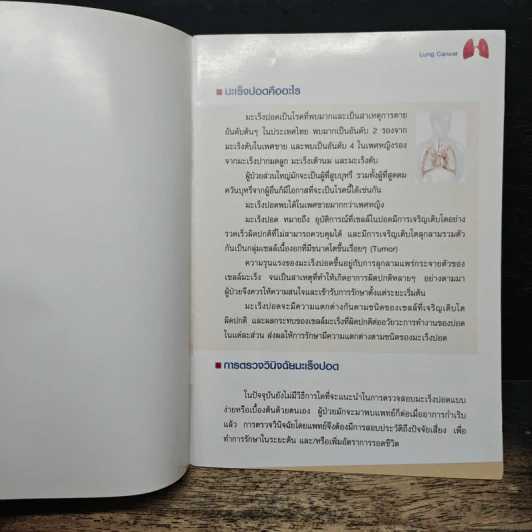 Lung Cancer
มะเร็งปอดคืออะไร
มะเร็งปอดเป็นโรคที่พบมากและเป็นสาเหตุการตาย
อันดับต้นๆ ในประเทศไทย พบมากเป็นอันดับ 2 รองจาก
มะเร็งตับในเพศชาย และพบเป็นอันดับ 4 ในเพศหญิงรอง
จากมะเร็งปากมดลูก มะเร็งเต้านม และมะเร็งตับ
ผู้ป่วยส่วนใหญ่มักจะเป็นผู้ที่สูบบุหรี่ รวมทั้งผู้ที่สูดดม
ควันบุหรี่จากผู้อื่นก็มีโอกาสที่จะเป็นโรคนี้ได้เช่นกัน
มะเร็งปอดพบได้ในเพศชายมากกว่าเพศหญิง
มะเร็งปอด หมายถึง อุบัติการณ์ที่เซลล์ในปอดมีการเจริญเติบโตอย่าง
รวดเร็วผิดปกติที่ไม่สามารถควบคุมได้ และมีการเจริญเติบโตลุกลามรวมตัว
กันเป็นกลุ่มเซลล์เนื้องอกที่มีขนาดโตขึ้นเรื่อยๆ (Tumor)
ความรุนแรงของมะเร็งปอดขึ้นอยู่กับการลุกลามแพร่กระจายตัวของ
เซลล์มะเร็ง จนเป็นสาเหตุที่ทำให้เกิดอาการผิดปกติหลายๆ อย่างตามมา
ผู้ป่วยจึงควรให้ความสนใจและเข้ารับการรักษาตั้งแต่ระยะเริ่มต้น
มะเร็งปอดจะมีความแตกต่างกันตามชนิดของเซลล์ที่เจริญเติบโต
ผิดปกติ และผลกระทบของเซลล์มะเร็งที่ผิดปกติต่ออวัยวะการทำงานของปอด
ในแต่ละส่วน ส่งผลให้การรักษามีความแตกต่างตามชนิดของมะเร็งปอด
การตรวจวินิจฉัยมะเร็งปอด
ในปัจจุบันยังไม่มีวิธีการใดที่จะแนะนำในการตรวจสอบมะเร็งปอดแบบ
ง่ายหรือเบื้องต้นด้วยตนเอง ผู้ป่วยมักจะมาพบแพทย์ก็ต่อเมื่ออาการกำเริบ
แล้ว การตรวจวินิจฉัยโดยแพทย์จึงต้องมีการสอบประวัติถึงปัจจัยเสี่ยง เพื่อ
ทำการรักษาในระยะต้น และ/หรือเพิ่มอัตราการรอดชีวิต